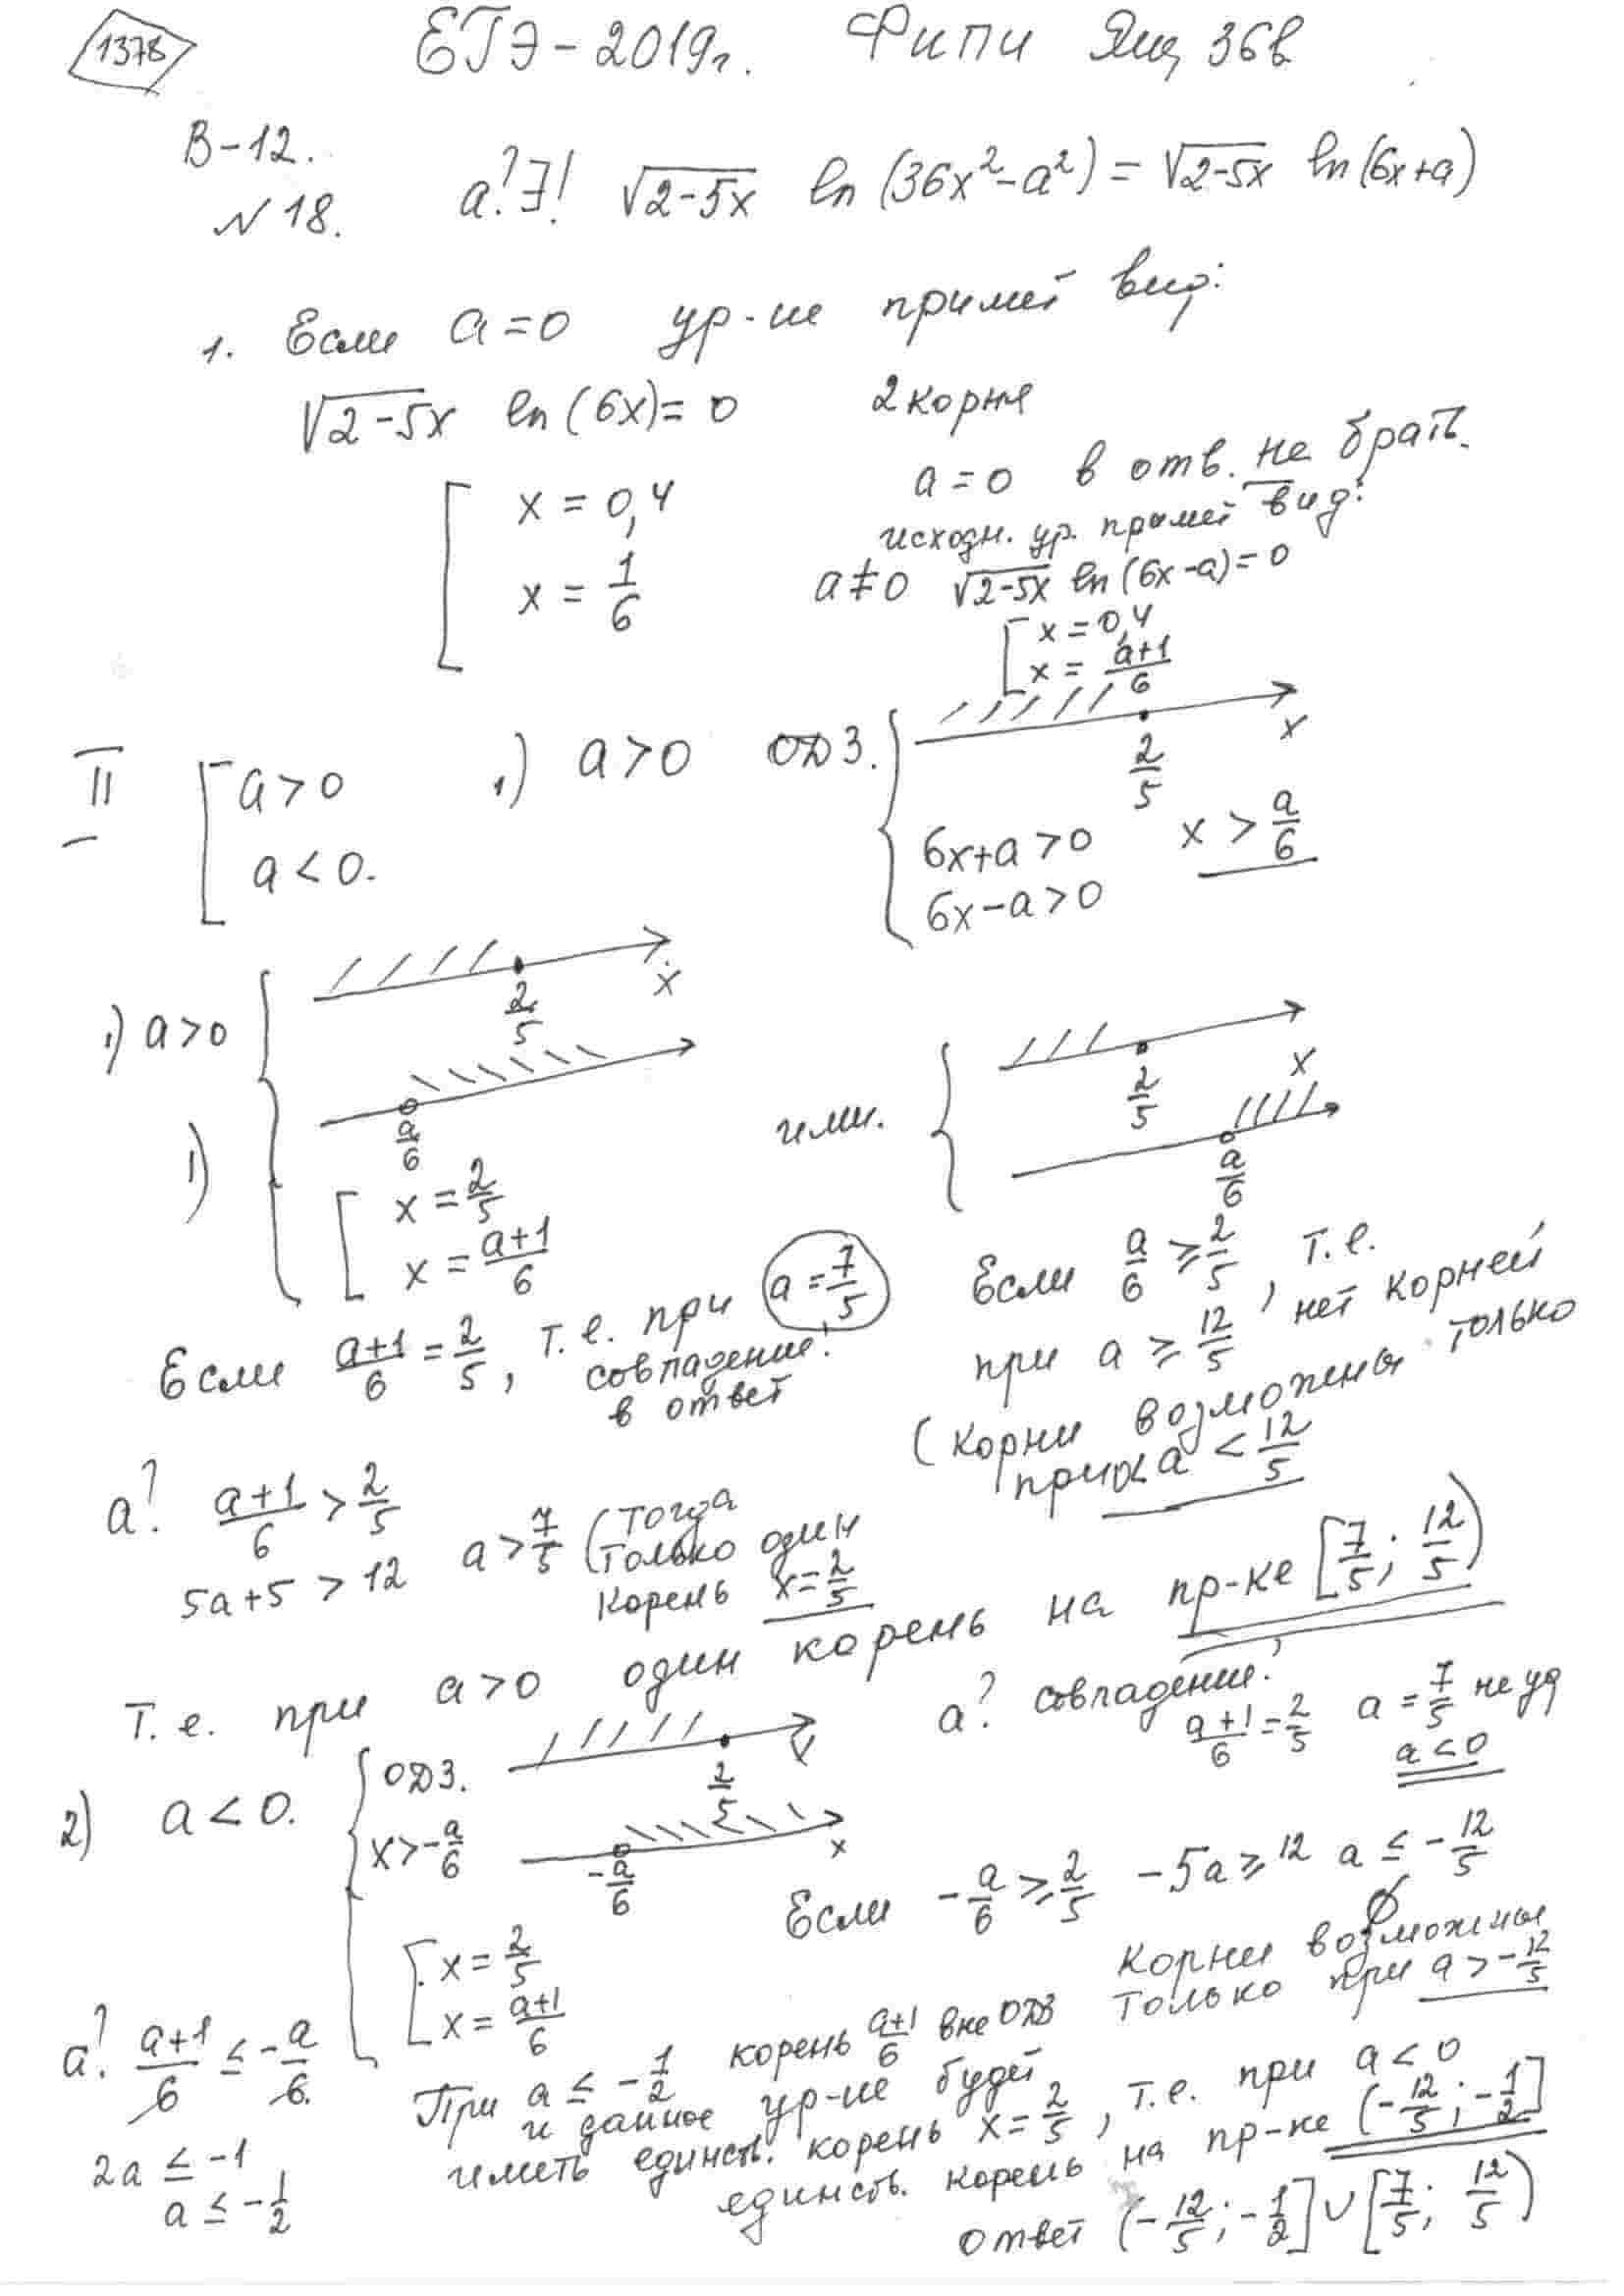 1378
ЕГЭ-2019г. ФИПИ Ящ 36в
В-12.
№18.
a? ∃! √(2-5x) ln(36x²-a²) = √(2-5x) ln(6x+a)
1. Если a=0 ур-ие примет вид:
√(2-5x) ln(6x)=0 2 корня
[ x = 0,4
x = 1/6
a=0 в отв. не брать.
исходн. ур. примет вид:
a≠0 √(2-5x) ln(6x-a)=0
[ x = 0,4
x = (a+1)/6
II [ a>0
a<0.
1) a>0 ОДЗ. {
x
2/5
6x+a>0 x > a/6
6x-a>0
1) a>0 {
x
2/5
a/6
1)
[ x = 2/5
x = (a+1)/6
или. {
x
2/5
a/6
Если (a+1)/6 = 2/5, т.е. при a = 7/5
совпадение!
в ответ
Если a/6 ≥ 2/5, т.е.
при a ≥ 12/5, нет корней
(корни возможны только
при a < 12/5
a? (a+1)/6 > 2/5
5a+5 > 12 a > 7/5 (тогда
только один
корень x=2/5
Т.е. при a>0 один корень на пр-ке [7/5; 12/5)
a? совпадение!
(a+1)/6 = 2/5 a = 7/5 не уд
a<0
2) a<0. { ОДЗ.
x
2/5
x > -a/6
x
-a/6
[ x = 2/5
x = (a+1)/6
Если -a/6 ≥ 2/5 -5a ≥ 12 a ≤ -12/5
∅
Корни возможны
только при a > -12/5
a? (a+1)/6 ≤ -a/6
2a ≤ -1
a ≤ -1/2
При a ≤ -1/2 корень (a+1)/6 вне ОДЗ
и данное ур-ие будет
иметь единств. корень x = 2/5, т.е. при a<0
единств. корень на пр-ке (-12/5; -1/2]
ответ (-12/5; -1/2] ∪ [7/5; 12/5)